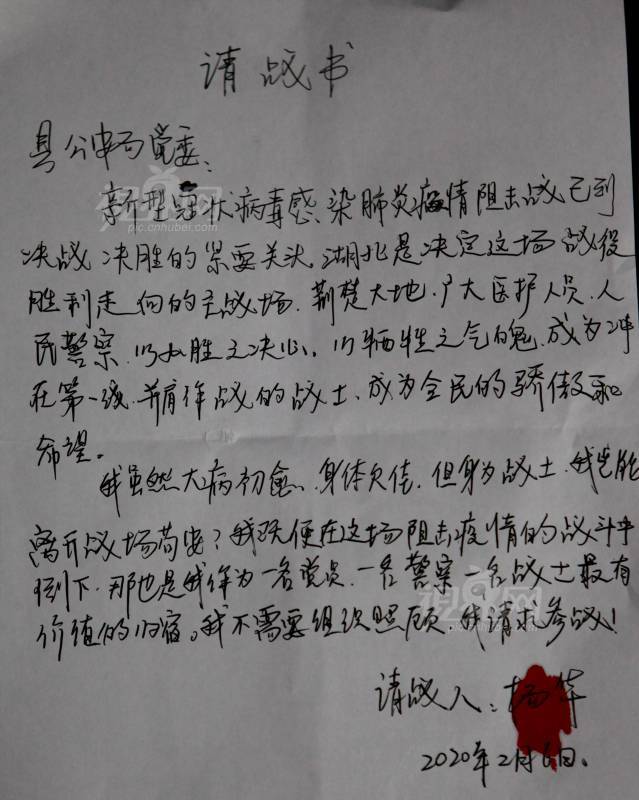 请战书
县公安局党委：
新型冠状病毒感染肺炎疫情阻击战已到
决战、决胜的紧要关头，湖北是决定这场战役
胜利走向的主战场。荆楚大地，广大医护人员、人
民警察，以必胜之决心，以牺牲之气魄，成为冲
在第一线，并肩作战的战士，成为全民的骄傲和
希望。
我虽然大病初愈，身体欠佳，但身为战士，我岂能
离开战场苟安？我即便在这场阻击疫情的战斗中
倒下，那也是我作为一名党员、一名警察、一名战士最有
价值的归宿。我不需要组织照顾，我请求参战！
请战人：杨华
2020年2月6日。
pic.cnhuber.com